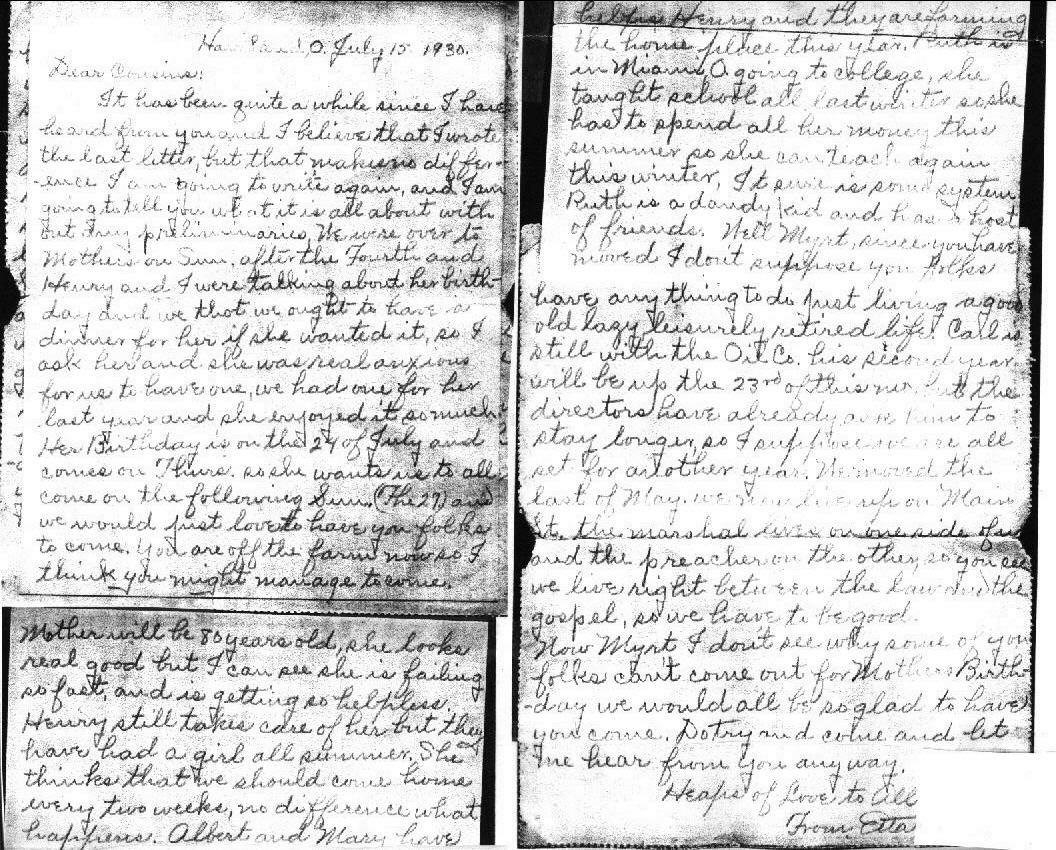 O, July 15 1930.
Dear Cousins:
It has been quite a while since I have
heard from you and I believe that I wrote
the last letter, but that makes no differ-
-ence I am going to write again, and I am
going to tell you what it is all about with
out any preliminaries, We were over to
Mothers on Sun. after the Fourth and
Henry and I were talking about her birth-
day and we that we ought to have a
dinner for her if she wanted it, so I
ask her and she was real anxious
for us to have one, we had one for her
last year and she enjoyed it so much.
Her Birthday is on the 24 of July and
comes on Thurs. so she wants us to all
come on the following Sun. (The 27) and
we would just love to have you folks
to come. You are off the farm now so I
think you might manage to come.
Mother will be 80 years old, she looks
real good but I can see she is failing
so fast, and is getting so helpless.
Henry still takes care of her but they
have had a girl all summer. She
thinks that we should come home
every two weeks, no difference what
happens. Albert and Mary have
helps Henry and they are farming
the home place this year. Ruth is
in Miami, O. going to college, she
taught school all last winter so she
has to spend all her money this
summer so she can teach again
this winter, It sure is some system
Ruth is a dandy kid and has a host
of friends. Well Myrt, since you have
moved I don't suppose you folks
have any thing to do just living a good
old lazy leisurely retired life. Carl is
still with the Oil Co. his second year
will be up the 23rd of this mo. but the
directors have already ask him to
stay longer, so I suppose we are all
set for another year. We moved the
last of May. we now live up on Main
St. the marshal lives on one side of us
and the preacher on the other, so you see
we live right between the law and the
gospel, so we have to be good.
Now Myrt I don't see why some of you
folks can't come out for Mothers Birth-
-day we would all be so glad to have
you come. Do try and come and let
me hear from you any way.
Heaps of Love to All
From Etta